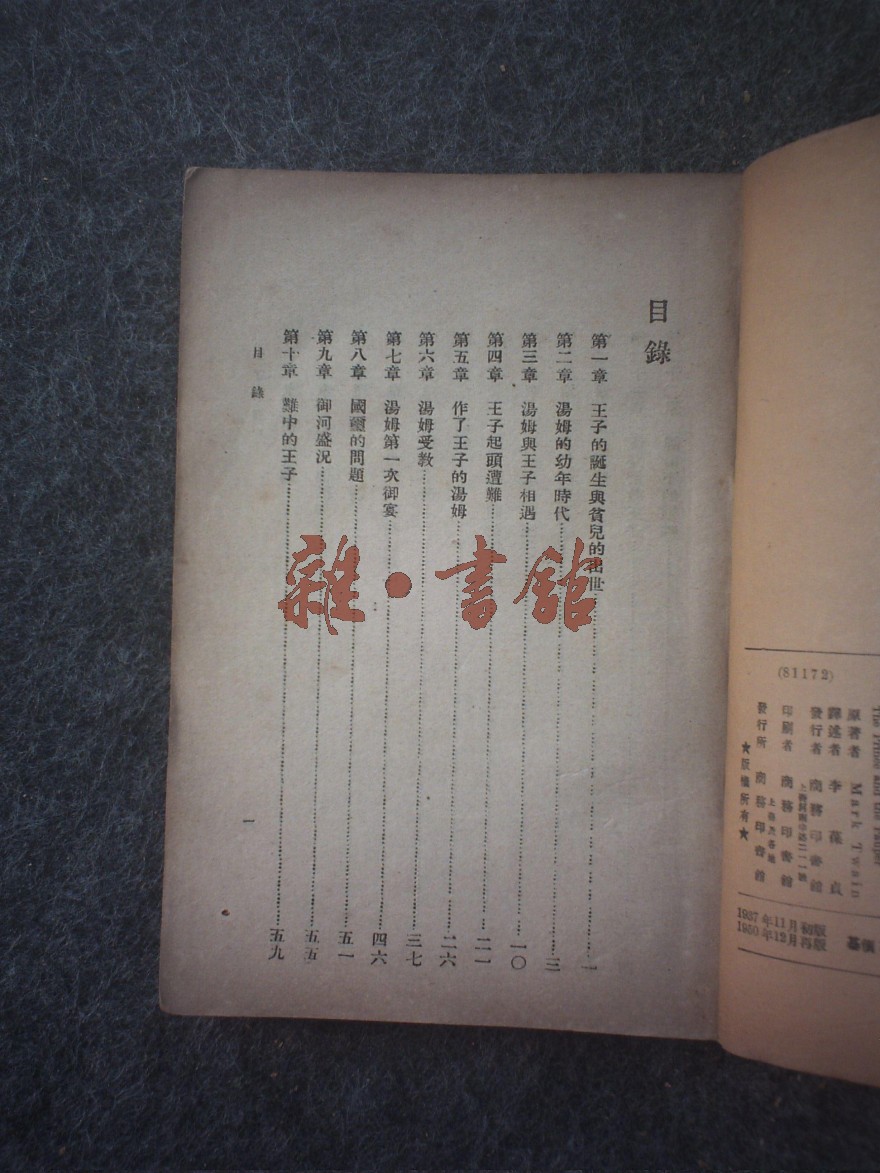 目錄
第一章　王子的誕生與貧兒的出世……一
第二章　湯姆的幼年時代……三
第三章　湯姆與王子相遇……一〇
第四章　王子起頭遭難……二一
第五章　作了王子的湯姆……二六
第六章　湯姆受教……三七
第七章　湯姆第一次御宴……四六
第八章　國璽的問題……五一
第九章　御河盛況……五五
第十章　難中的王子……五九
目錄
一
雜·書館
(81172)
The Prince and the Pauper
原著者 Mark Twain
譯述者 李葆貞
發行者 商務印書館
印刷者 商務印書館
發行所 商務印書館
★版權所有★
1937年11月初版
1950年12月再版